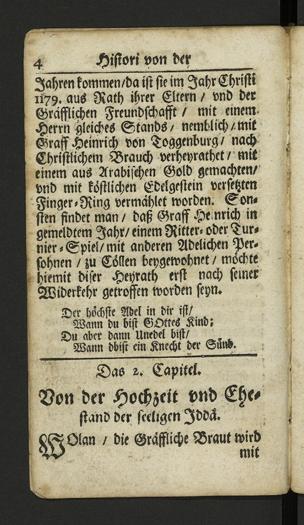 4 Histori von der
Jahren kommen/da ist sie im Jahr Christi
1179. aus Rath ihrer Eltern / vnd der
Gräfflichen Freundschafft / mit einem
Herrn gleiches Stands / nemblich/mit
Graff Heinrich von Toggenburg / nach
Christlichem Brauch verheyrathet / mit
einem aus Arabischen Gold gemachten/
vnd mit köstlichen Edelgestein versetzten
Finger-Ring vermählet worden. Son-
sten findet man / daß Graff Heinrich in
gemeldtem Jahr/ einem Ritter- oder Tur-
nier-Spiel/ mit anderen Adelichen Per-
sohnen / zu Cöllen beygewohnet / möchte
hiemit diser Heyrath erst nach seiner
Widerkehr getroffen worden seyn.
Der höchste Adel in dir ist/
Wann du bist GOttes Kind;
Du aber dann Unedel bist/
Wann dbist ein Knecht der Sünd.
Das 2. Capitel.
Von der Hochzeit vnd Ehe-
stand der seeligen Iddâ.
WOlan / die Gräffliche Braut wird
mit